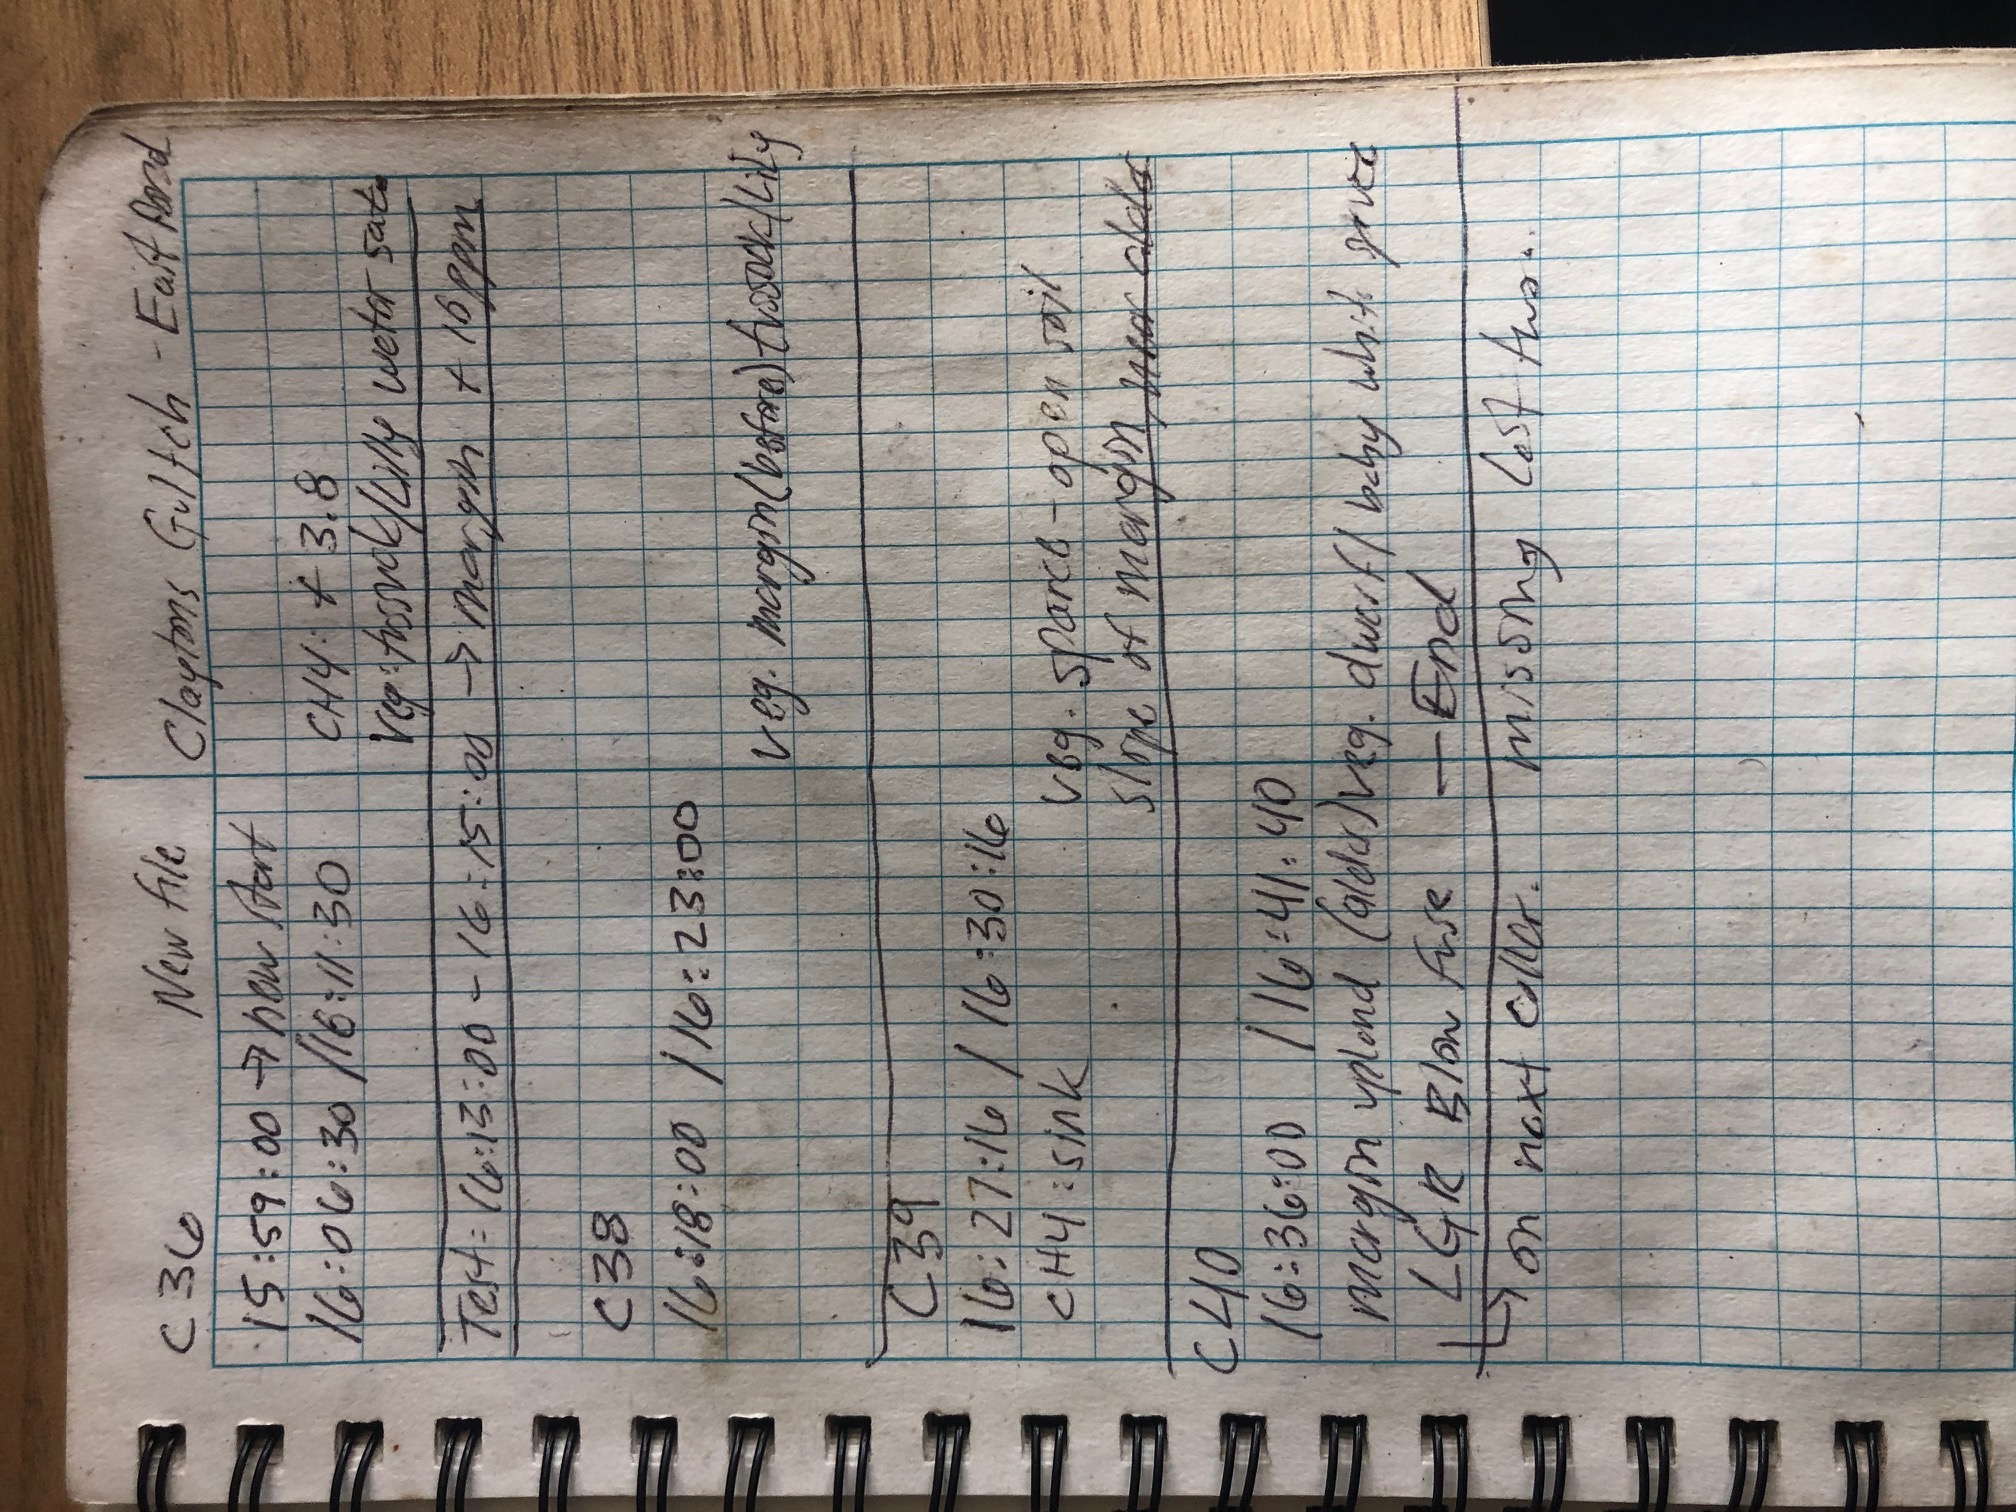 C36 New file Claytons Gultch - East Pond
15:59:00 → new start
16:06:30 / 16:11:30 CH4: + 3.8
Veg: tussock/Lilly water sat.
Test: 16:13:00 - 16:15:00 → margin + 16 ppm
C38
16:18:00 / 16:23:00
veg. margin (before) tussock/Lily
C39
16:27:16 / 16:30:16
CH4: sink veg. sparce - open soil
slope of margin, near alder
C40
16:36:00 / 16:41:40
margin upland (alder) veg. dwarf/baby white spruce
LGR Blow fuse — End
↳ on next collar. missing last two..